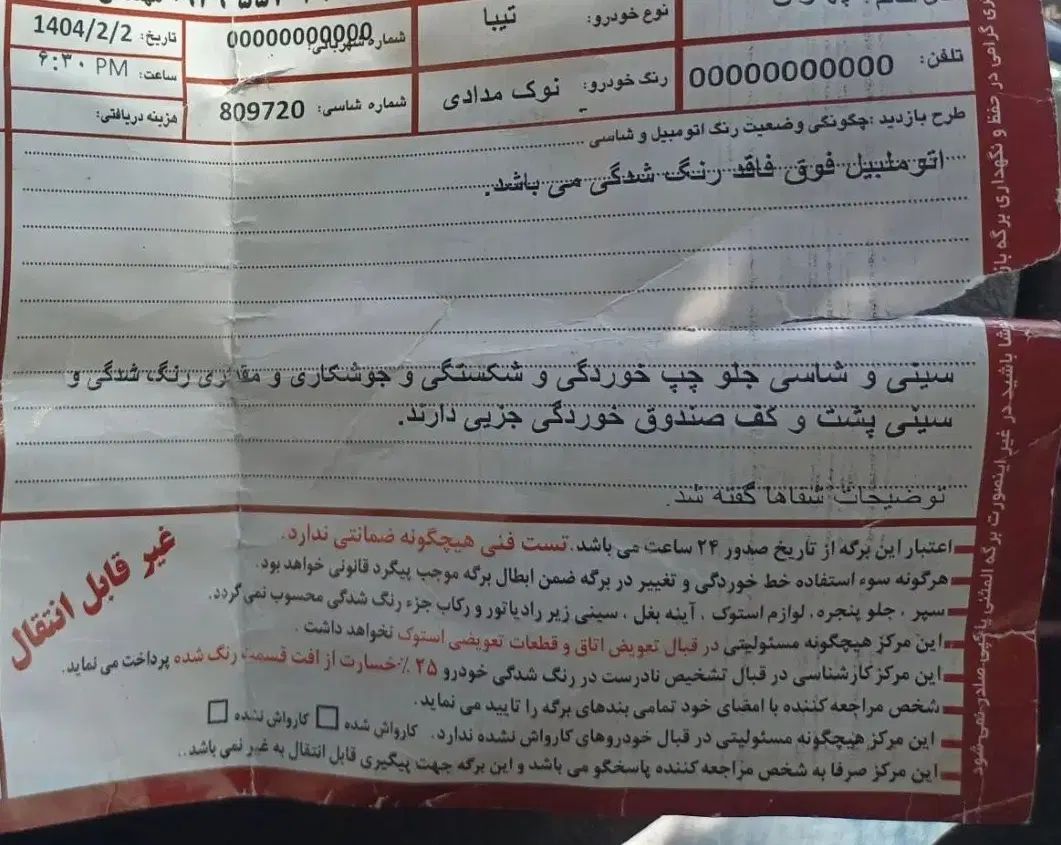 نوع خودرو: تیبا
شماره شهربانی: 00000000000
تاریخ: 1404/2/2
تلفن: 00000000000
رنگ خودرو: نوک مدادی
شماره شاسی: 809720
ساعت: ۶:۳۰ PM
هزینه دریافتی:
طرح بازدید :چگونگی وضعیت رنگ اتومبیل و شاسی
اتوملبیل فوق فاقد رنگ شدگی می باشد.
سینی و شاسی جلو چپ خوردگی و شکستگی و جوشکاری و مقداری رنگ شدگی و
سینی پشت و کف صندوق خوردگی جزیی دارند.
توضیحات شفاها گفته شد.
اعتبار این برگه از تاریخ صدور ۲۴ ساعت می باشد. تست فنی هیچگونه ضمانتی ندارد.
هرگونه سوء استفاده خط خوردگی و تغییر در برگه ضمن ابطال برگه موجب پیگرد قانونی خواهد بود.
سپر ، جلو پنجره، لوازم استوک ، آینه بغل ، سینی زیر رادیاتور و رکاب جزء رنگ شدگی محسوب نمی گردد.
این مرکز هیچگونه مسئولیتی در قبال تعویض اتاق و قطعات تعویضی استوک نخواهد داشت .
این مرکز کارشناسی در قبال تشخیص نادرست در رنگ شدگی خودرو ۲۵ ٪ خسارت از افت قسمت رنگ شده پرداخت می نماید.
شخص مراجعه کننده با امضای خود تمامی بندهای برگه را تایید می نماید.
این مرکز هیچگونه مسئولیتی در قبال خودروهای کارواش نشده ندارد. کارواش شده کارواش نشده
این مرکز صرفا به شخص مراجعه کننده پاسخگو می باشد و این برگه جهت پیگیری قابل انتقال به غیر نمی باشد..
غیر قابل انتقال
گرامی در حفظ و نگهداری برگه
باشید در غیر اینصورت برگه المثنی یا کپی صادر نمی شود